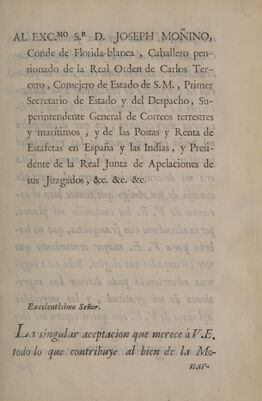 AL EXC.MO S.R D. JOSEPH MOÑINO,
Conde de Florida-blanca, Caballero pen-
sionado de la Real Orden de Carlos Ter-
cero, Consejero de Estado de S.M., Primer
Secretario de Estado y del Despacho, Su-
perintendente General de Correos terrestres
y marítimos, y de las Postas y Renta de
Estafetas en España y las Indias, y Presi-
dente de la Real Junta de Apelaciones de
sus Juzgados, &c. &c. &c.
Excelentísimo Señor.
La singular aceptacion que merece à V.E.
todo lo que contribuye al bien de la Mo-
nar-